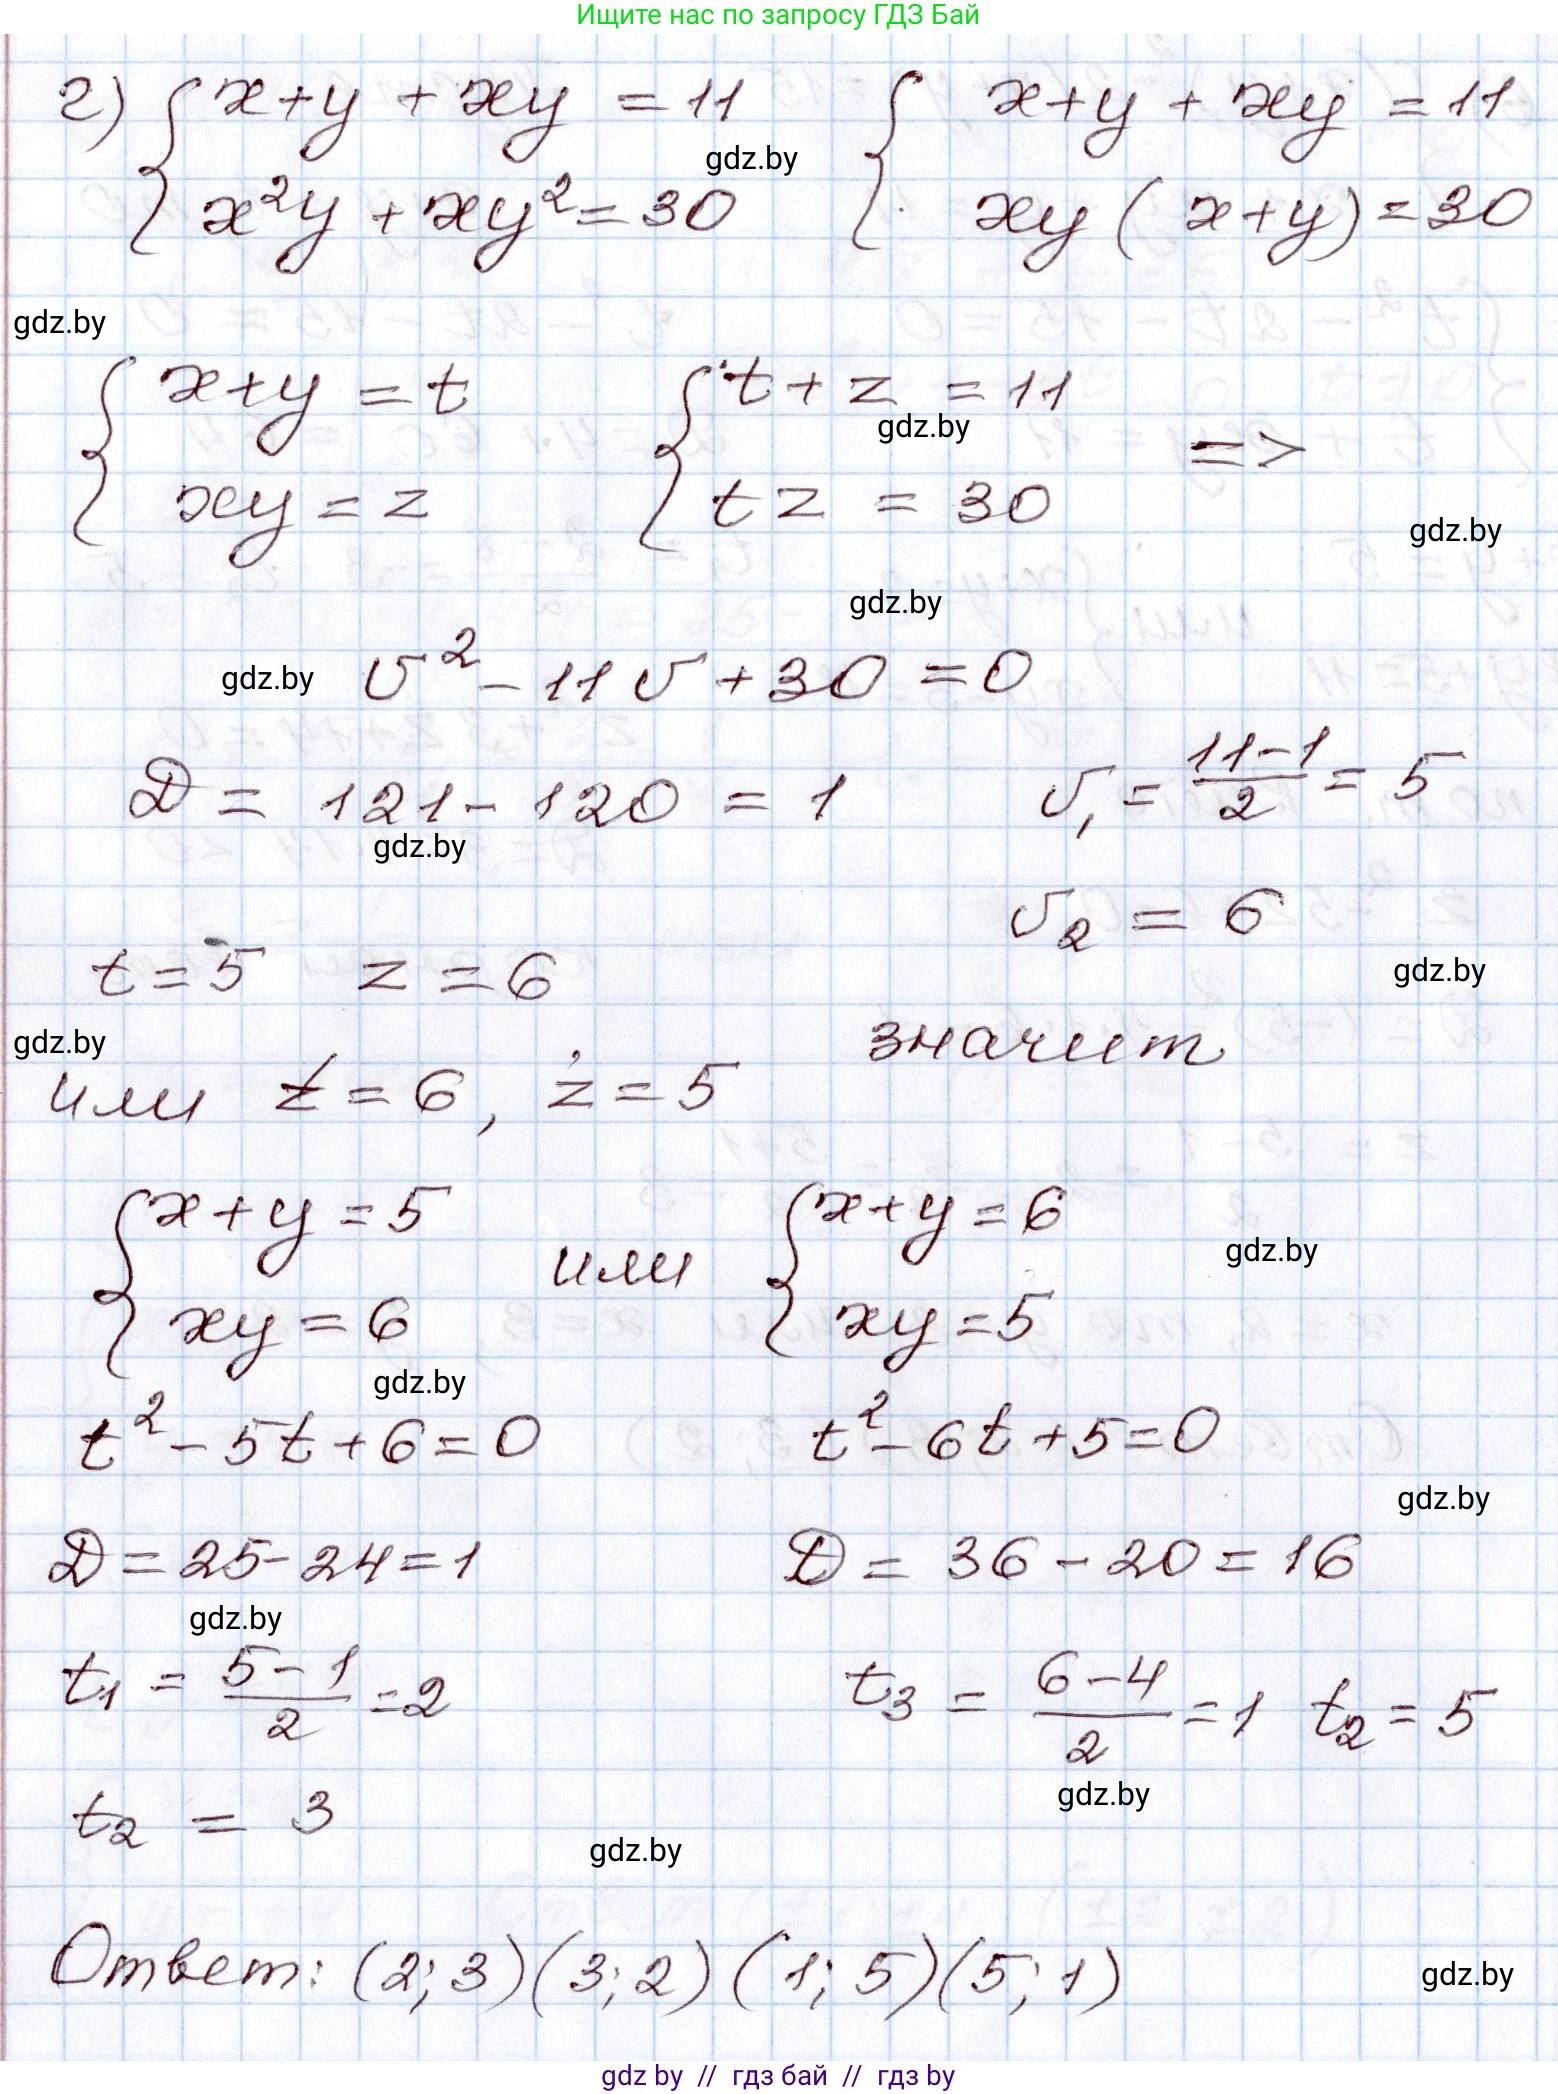 Ищите нас по запросу ГДЗ Бай
г) { x+y + xy = 11 { x+y + xy = 11
gdz.by
x²y + xy² = 30 xy ( x+y) = 30
gdz.by
{ x+y = t { t + z = 11
gdz.by
=>
xy = z tz = 30
gdz.by
gdz.by
gdz.by v² - 11v + 30 = 0
D = 121 - 120 = 1 v₁ = (11-1)/2 = 5
gdz.by
v₂ = 6
t = 5 z = 6
gdz.by
gdz.by
значит
или t = 6, z = 5
{ x+y = 5 или { x+y = 6
gdz.by
xy = 6 xy = 5
gdz.by
t² - 5t + 6 = 0 t² - 6t + 5 = 0
gdz.by
D = 25 - 24 = 1 D = 36 - 20 = 16
gdz.by
t₁ = (5-1)/2 = 2 t₃ = (6-4)/2 = 1 t₂ = 5
gdz.by
t₂ = 3
gdz.by
Ответ: (2; 3) (3; 2) (1; 5) (5; 1)
gdz.by
gdz by // гдз бай // гдз by